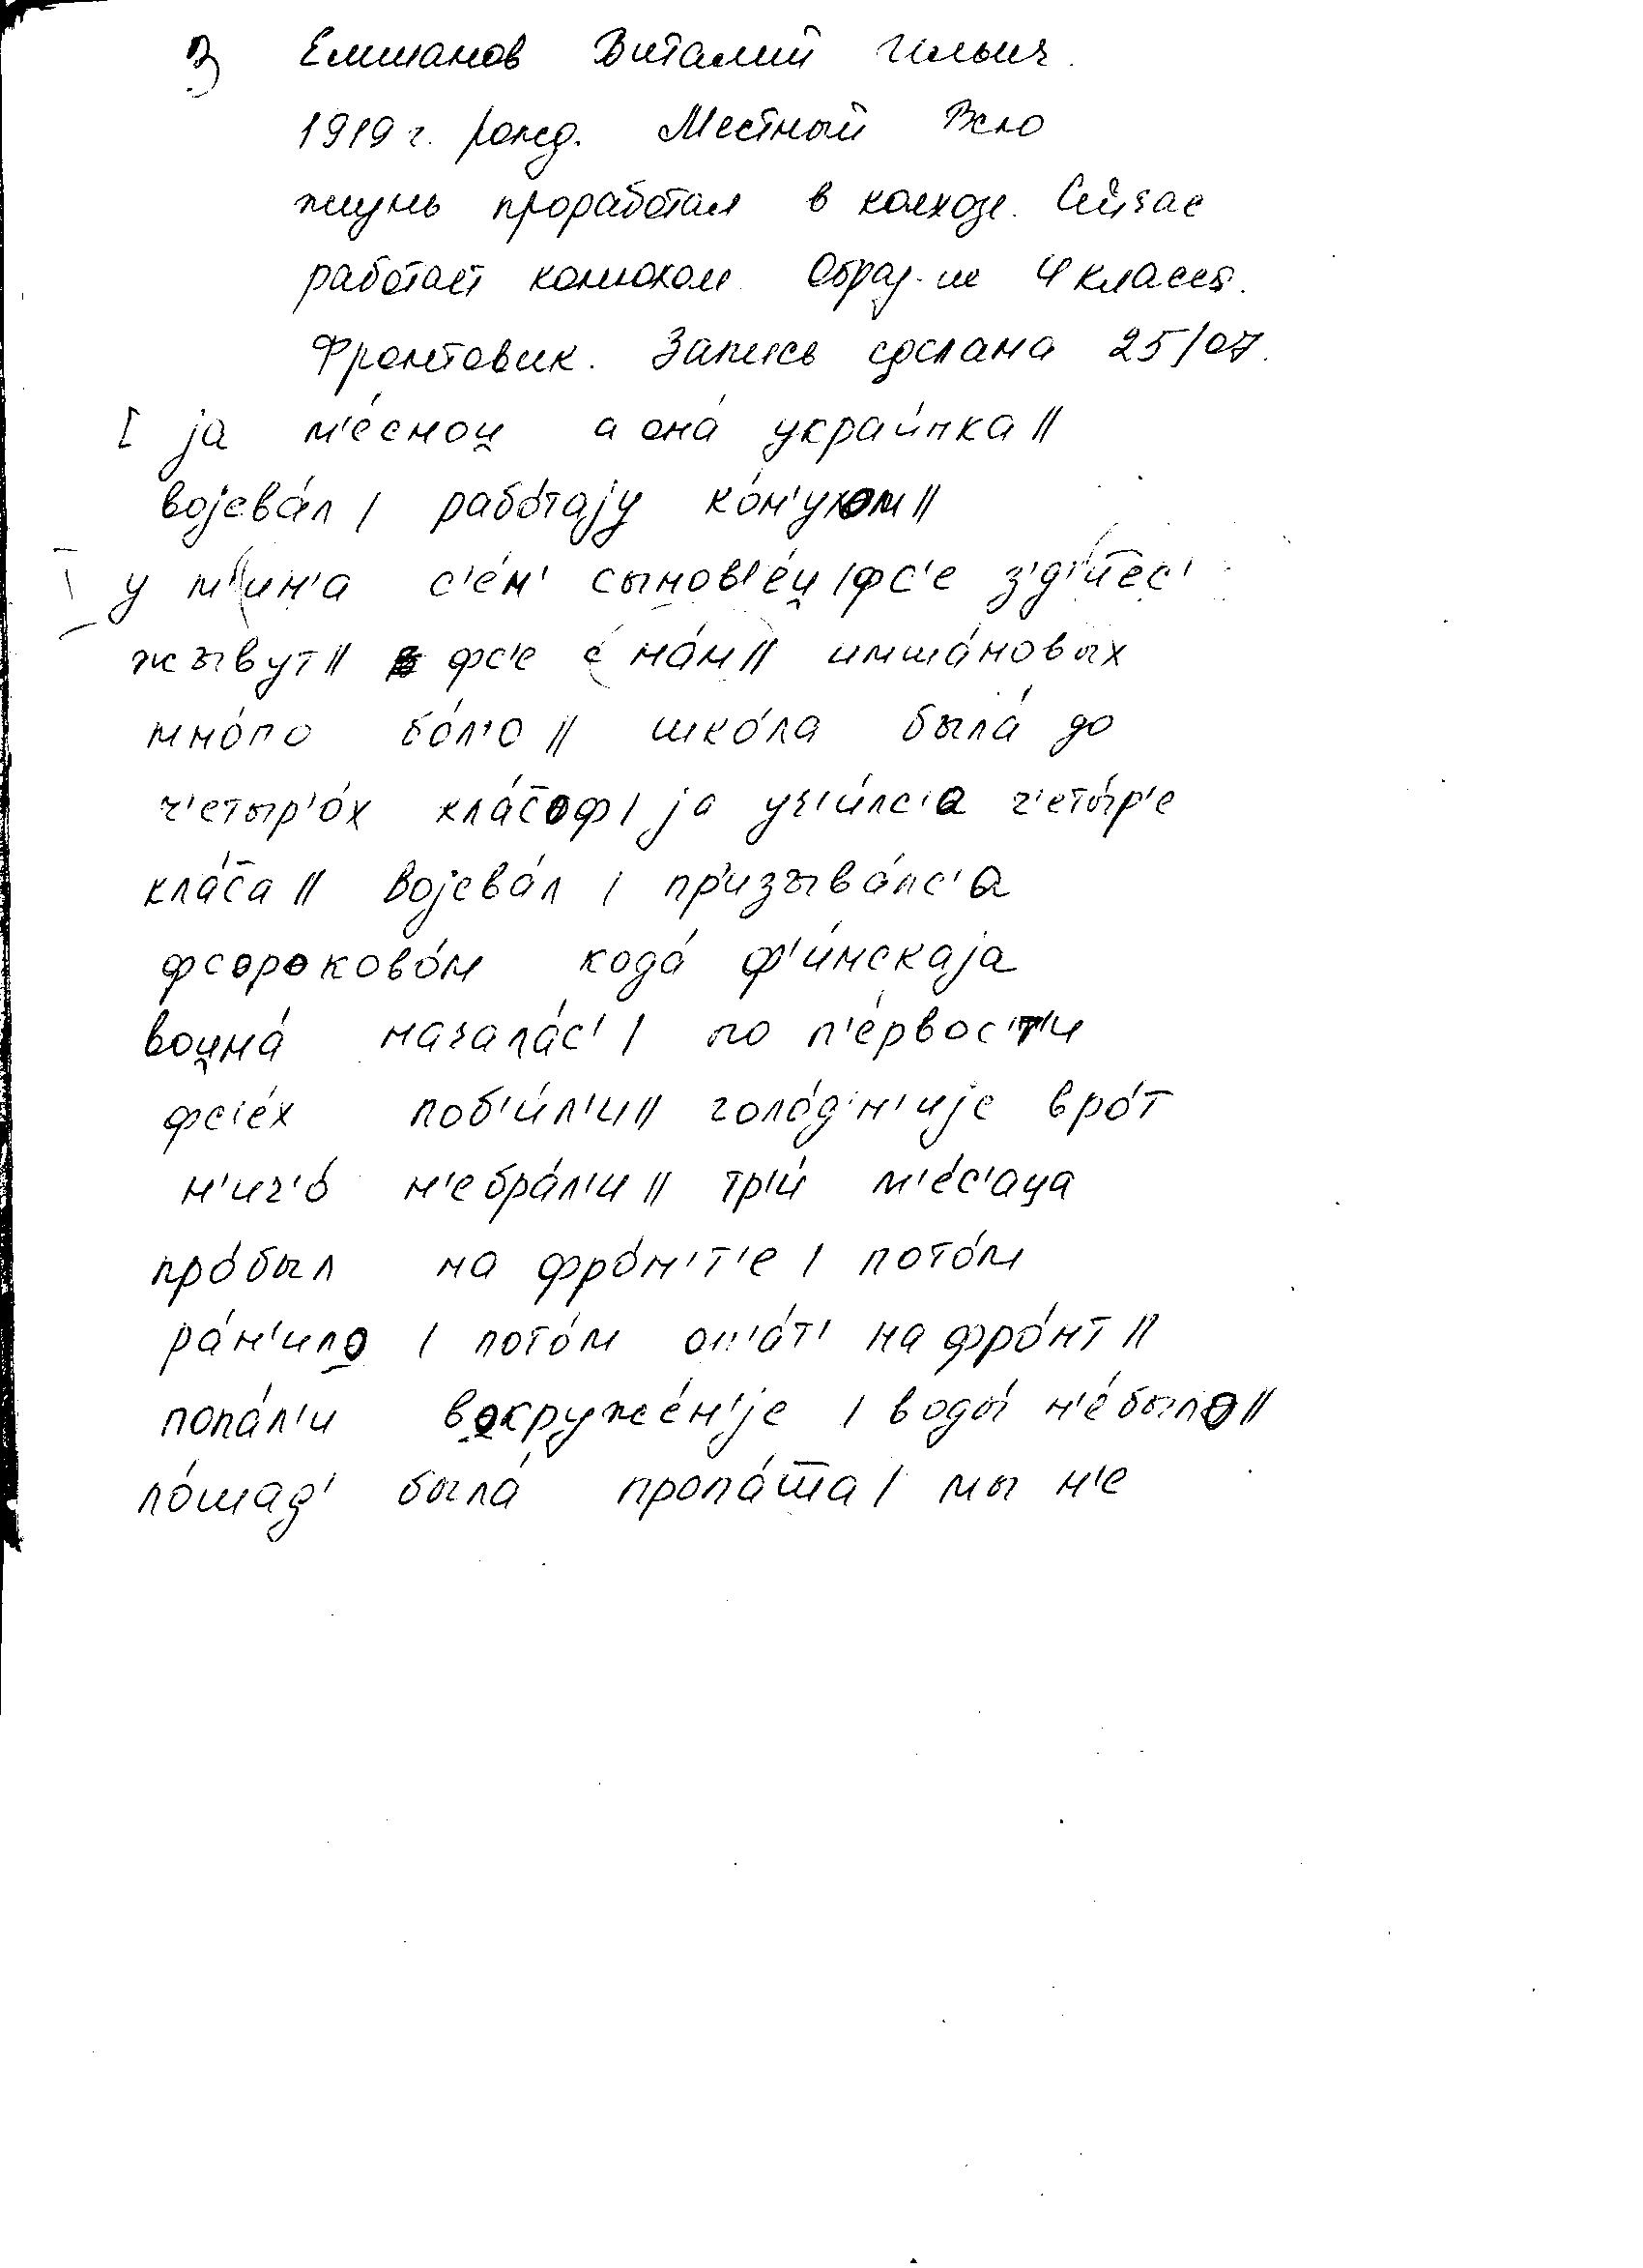 3) Емшанов Виталий Ильич.
1919 г. рожд. Местный Всю
жизнь проработал в колхозе. Сейчас
работает конюхом. Образ-ие 4 класса.
Фронтовик. Запись сделана 25/07.
[ jа м'éснои̯ а онá украи́нка ||
воjевáл | рабóтаjу кóн'ухом ||
у м'ин'а с'éм' сынов'éи̯ | фс'е з'д'
жъıвут || фс'е нáм || имшáновых
мнóго || шкóла былá до
ч'етыр'óх клáс̄оф | jа уч'и́лс'а ч'еты́р'е
клáс̄а || воjевáл | призъıвáлс'а
фсороковóм кодá ф'и́нскаjа
вои̯нá началáс' | по п'éрвос'т'и
фс'éх поб'и́л'и || голóд'н'иjе врóт
н'ич'ó н'ебрáл'и || тр'и́ м'éс'аца
прóбыл на фрóн'т'е | потóм
рáн'ило | потóм оп'áт' на фрóнт ||
попáл'и вокружéн'jе | воды́ н'é было ||
лóшад' былá пропáш̄а | мы н'е